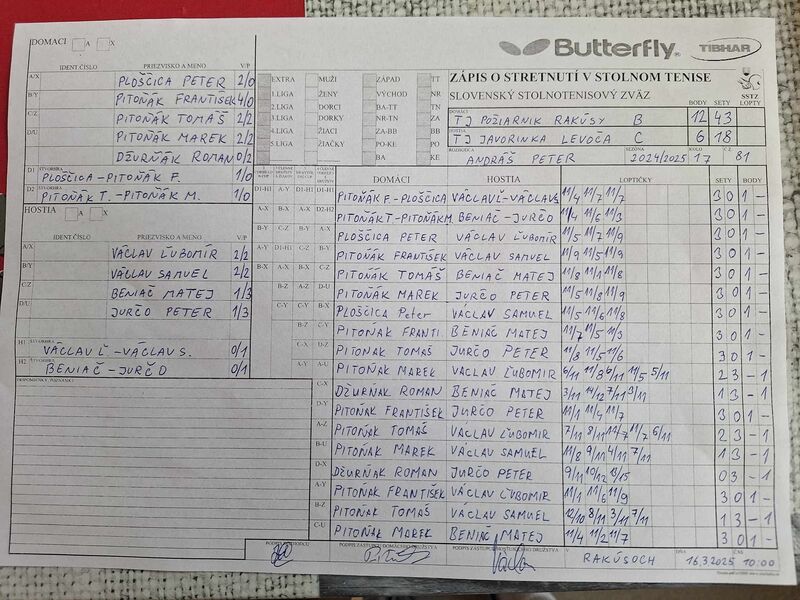 DOMÁCI A X
Butterfly
TIBHAR
IDENT.ČÍSLO PRIEZVISKO A MENO V/P
A/X PLOŠČICA PETER 2/0
B/Y PITOŇÁK FRANTIŠEK 4/0
C/Z PITOŇÁK TOMÁŠ 2/2
D/U PITOŇÁK MAREK 2/2
DŽURŇÁK ROMAN 0/2
D1 ŠTVORHRA PLOŠČICA-PITOŇÁK F. 1/0
D2 ŠTVORHRA PITOŇÁK T.-PITOŇÁK M. 1/0
EXTRA MUŽI ZÁPAD TT
1.LIGA ŽENY VÝCHOD NR
2.LIGA DORCI BA-TT TN
3.LIGA DORKY NR-TN ZA
4.LIGA ŽIACI ZA-BB BB
5.LIGA ŽIAČKY PO-KE PO
BA KE
ZÁPIS O STRETNUTÍ V STOLNOM TENISE
SLOVENSKÝ STOLNOTENISOVÝ ZVÄZ
SSTZ
BODY SETY LOPTY
DOMÁCI TJ POŽIARNIK RAKÚSY B 12 43
HOSTIA TJ JAVORINKA LEVOČA C 6 18
ROZHODCA ANDRÁŠ PETER SEZÓNA 2024/2025 KOLO 17 Č.Z. 81
HOSTIA A X
IDENT.ČÍSLO PRIEZVISKO A MENO V/P
A/X VÁCLAV ĽUBOMÍR 2/2
B/Y VÁCLAV SAMUEL 2/2
C/Z BENIAČ MATEJ 1/3
D/U JURČO PETER 1/3
H1 ŠTVORHRA VÁCLAV Ľ-VÁCLAV S. 0/1
H2 ŠTVORHRA BENIAČ-JURČO 0/1
DOMÁCI HOSTIA LOPTIČKY SETY BODY
PITOŇÁK F.-PLOŠČICA VÁCLAV Ľ-VÁCLAV S 11/4 11/7 11/7 3 0 1 -
PITOŇÁK T-PITOŇÁK M BENIAČ-JURČO 11/4 11/6 11/3 3 0 1 -
PLOŠČICA PETER VÁCLAV ĽUBOMÍR 11/5 11/7 11/9 3 0 1 -
PITOŇÁK FRANTIŠEK VÁCLAV SAMUEL 11/9 11/5 11/9 3 0 1 -
PITOŇÁK TOMÁŠ BENIAČ MATEJ 11/8 11/1 11/8 3 0 1 -
PITOŇÁK MAREK JURČO PETER 11/5 11/8 11/9 3 0 1 -
PLOŠČICA Peter VÁCLAV SAMUEL 11/5 11/8 11/9 3 0 1 -
PITOŇAK FRANTI. BENIAČ MATEJ 11/7 11/5 11/3 3 0 1 -
PITOŇAK TOMAŠ JURČO PETER 11/8 11/5 11/6 3 0 1 -
PITOŇAK MAREK VÁCLAV ĽUBOMIR 6/11 11/8 6/11 11/5 5/11 2 3 - 1
DŽURŇAK ROMAN BENIAČ MATEJ 3/11 14/12 7/11 3/11 1 3 - 1
PITOŇÁK FRANTIŠEK JURČO PETER 11/1 11/4 11/7 3 0 1 -
PITOŇAK TOMAŠ VÁCLAV ĽUBOMIR 7/11 8/11 11/7 6/11 2 3 - 1
PITOŇAK MAREK VÁCLAV SAMUEL 11/8 9/11 4/11 7/11 1 3 - 1
DŽURŇAK ROMAN JURČO PETER 9/11 10/12 13/15 0 3 - 1
PITOŇAK FRANTIŠEK VÁCLAV ĽUBOMIR 11/1 11/6 11/9 3 0 1 -
PITOŇAK TOMAS VÁCLAV SAMUEL 12/10 8/11 3/11 7/11 1 3 - 1
PITOŇAK MAREK BENIAČ MATEJ 11/4 11/2 11/7 3 0 1 -
PODPIS ROZHODCU PODPIS ZÁSTUPCU DOMÁCEHO DRUŽSTVA PODPIS ZÁSTUPCU HOSŤUJÚCEHO DRUŽSTVA V RAKÚSOCH DŇA 16.3.2025 ČAS 10:00